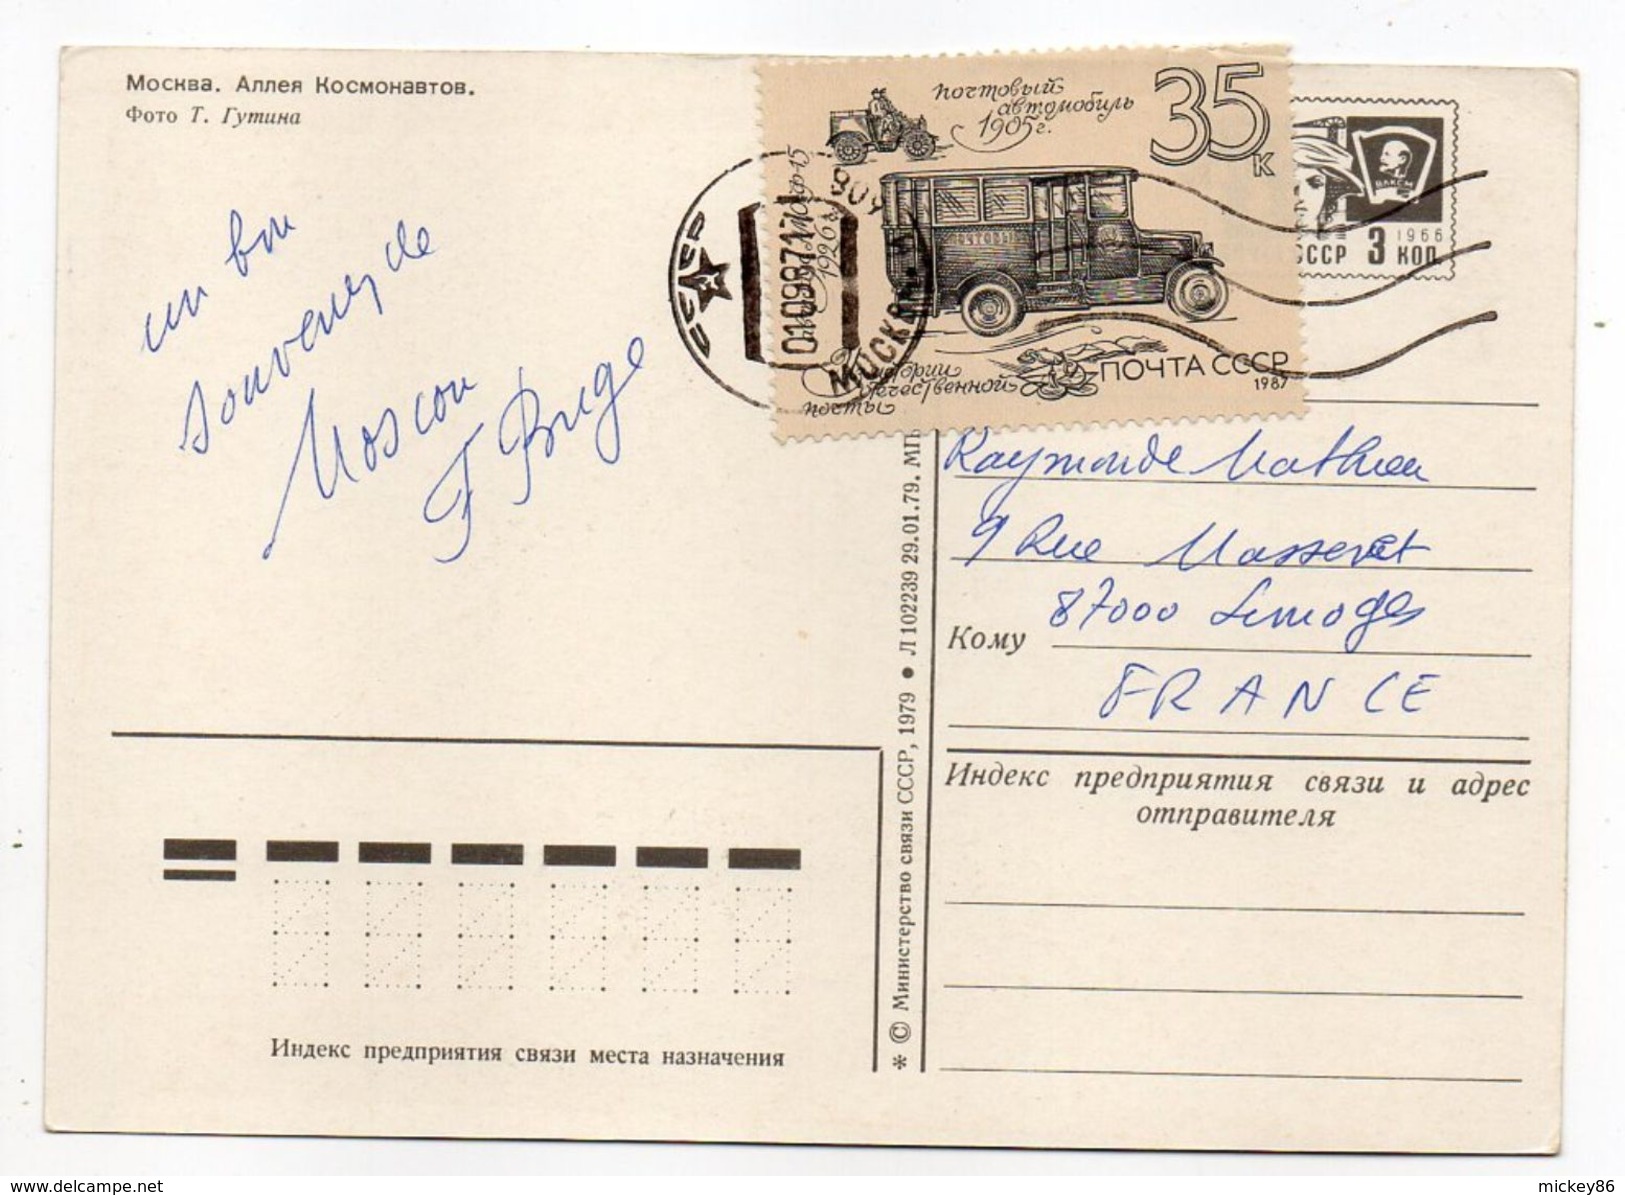 Москва. Аллея Космонавтов.
Фото Т. Гутина
un bon
souvenir de
Moscou
почтовый
автомобиль
1905г.
35
к
1926г.
ПОЧТОВЫ
истории
отечественной
почты
ПОЧТА СССР
1987
СССР
010987
МОСКВА
ВЛКСМ
1966
СССР 3 КОП
Raymonde Mathieu
9 Rue Masseret
87000 Limoges
Кому
FRANCE
Индекс предприятия связи и адрес
отправителя
* © Министерство связи СССР, 1979 • Л 102239 29.01.79. МП
Индекс предприятия связи места назначения
www.delcampe.net
mickey86